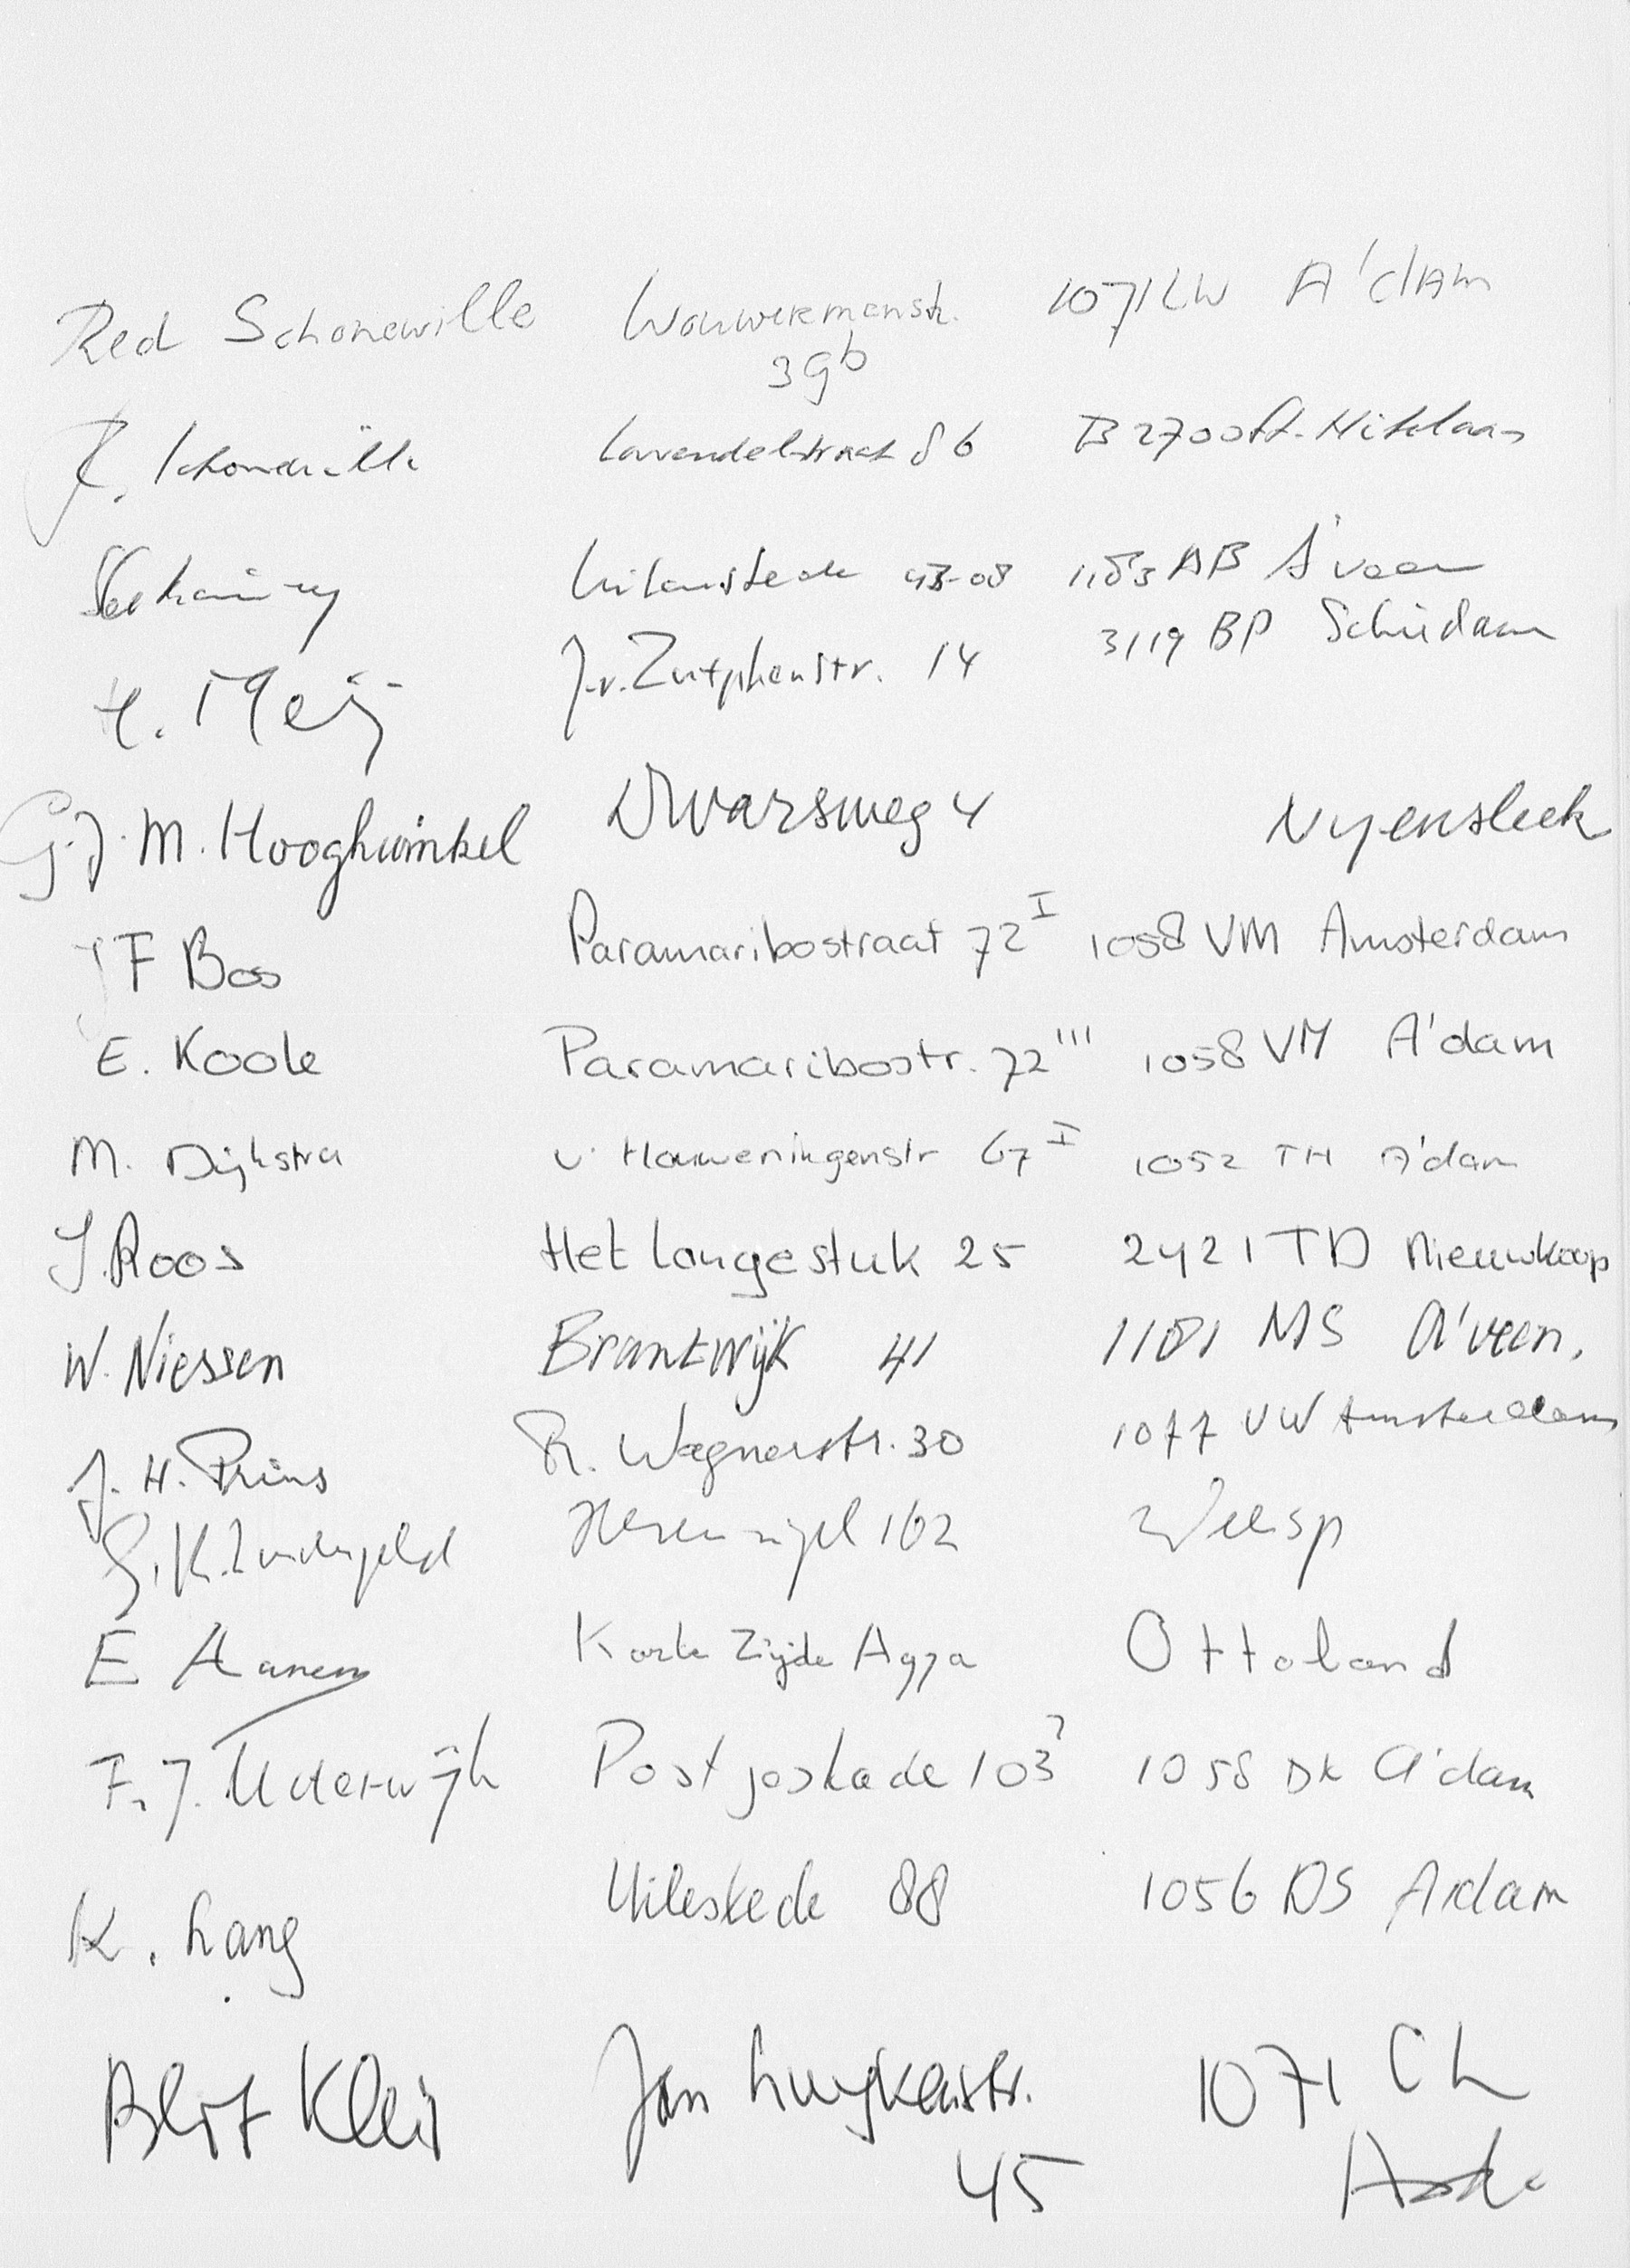 Red Schonewille Wouwermanstr. 1071 LW A'dAm
39b
R. Schonewille Lavendelstraat 86 B 2700 St. Niklaas
Uilenstede 43-08 1183 AB A'veen
H. Meij J.v. Zutphenstr. 14 3119 BP Schiedam
G.J.M. Hooghwinkel Dwarsweg 4 Nyensleek
J F Bos Paramaribostraat 72 I 1058 VM Amsterdam
E. Koole Paramaribostr. 72 ''' 1058 VM A'dam
M. Dijkstra v. Houweningenstr 67 I 1052 TH A'dam
J. Roos Het Langestuk 25 2421 TD Nieuwkoop
W. Niessen Brantwijk 41 1181 MS A'veen.
J. H. Prins R. Wagnerstr. 30 1077 VW Amsterdam
G. K. 162 Weesp
E Aanen Korte Zijde A97a Ottoland
F. J. Uiterwijk Postjeskade 103 1058 DK A'dam
K. Lang Uilestede 88 1056 DS A'dam
Bert Klein Jan Luykenstr. 1071 CL
45